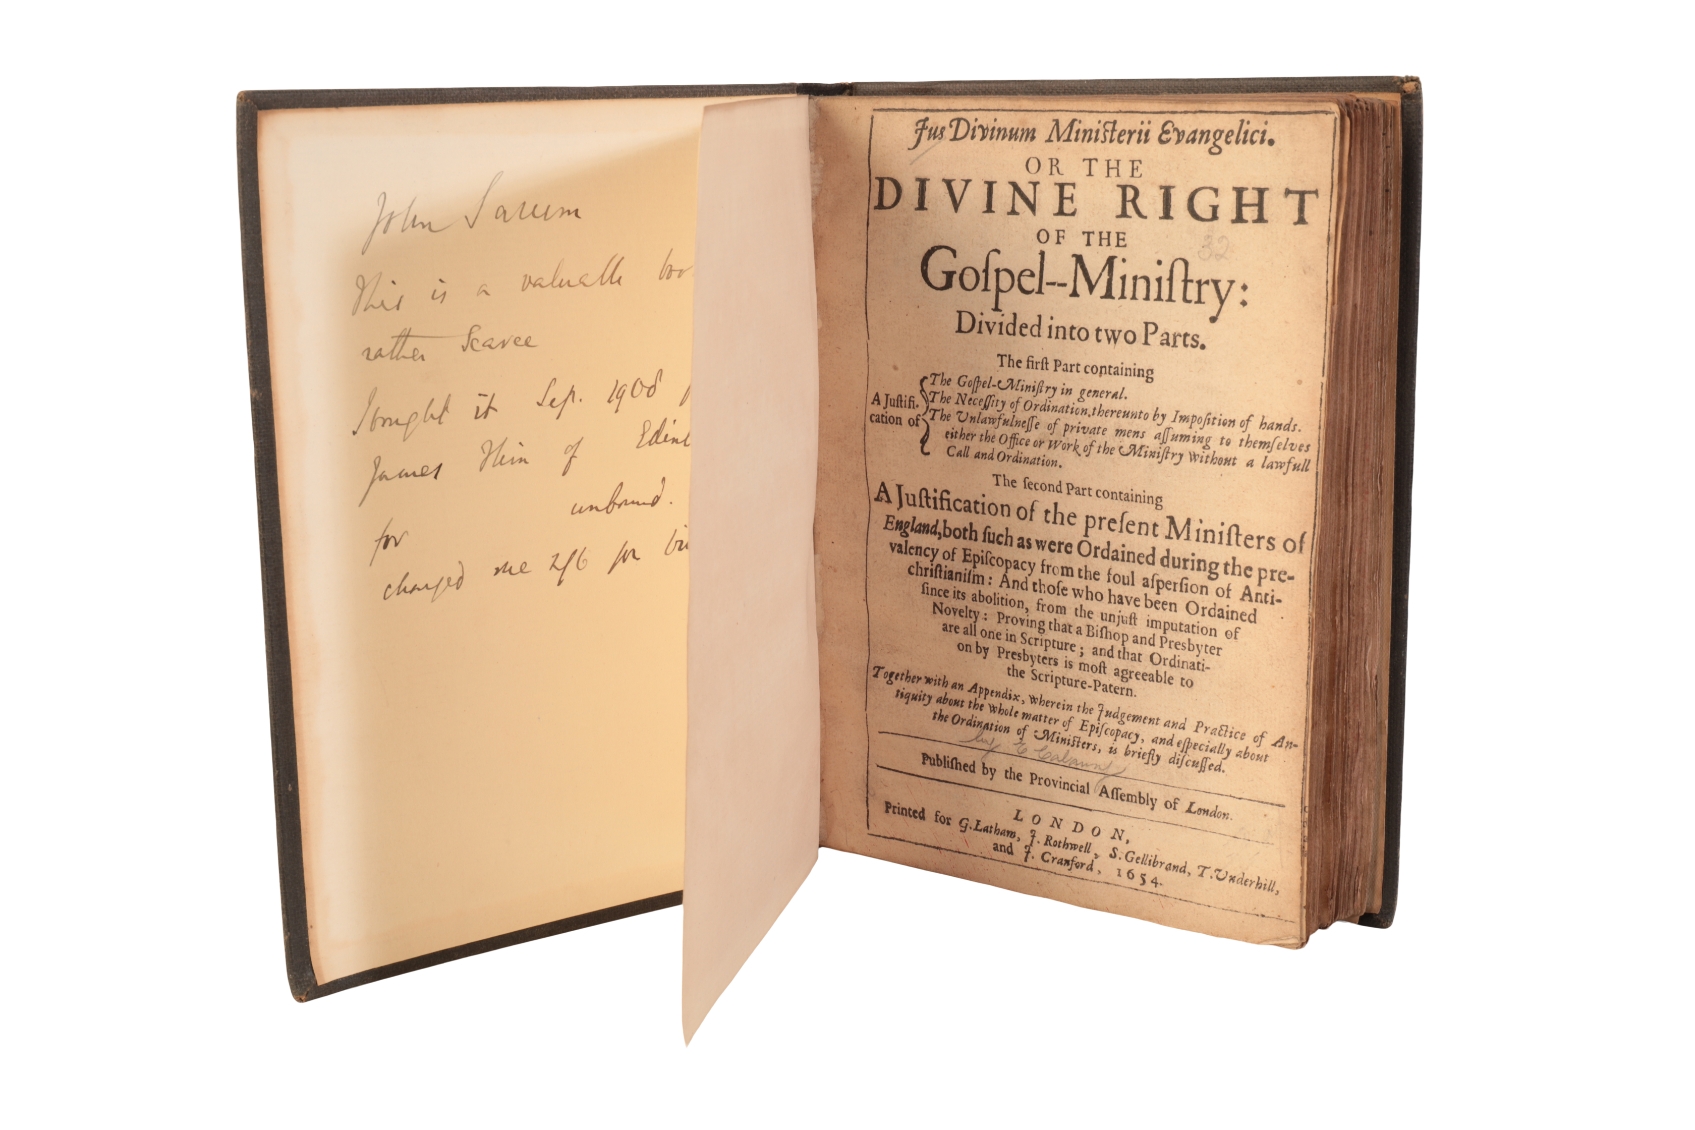 John Sarum
This is a valuable boo
rather Scarce
I bought it Sep. 1908
James Thin of Edin
unbound.
for
charged me 2/6 for bi
Jus Divinum Ministerii Evangelici.
OR THE
DIVINE RIGHT
OF THE
32
Goſpel--Miniſtry:
Divided into two Parts.
The firſt Part containing
A Juſtifi-
cation of
The Goſpel-Miniſtry in general.
The Neceſſity of Ordination, thereunto by Impoſition of hands.
The Unlawfulneſſe of private mens aſſuming to themſelves
either the Office or Work of the Miniſtry without a lawfull
Call and Ordination.
The ſecond Part containing
A Juſtification of the preſent Miniſters of
England, both ſuch as were Ordained during the pre-
valency of Epiſcopacy from the foul aſperſion of Anti-
chriſtianiſm: And thoſe who have been Ordained
ſince its abolition, from the unjuſt imputation of
Novelty: Proving that a Biſhop and Presbyter
are all one in Scripture; and that Ordinati-
on by Presbyters is moſt agreeable to
the Scripture-Patern.
Together with an Appendix, wherein the Judgement and Practice of An-
tiquity about the whole matter of Epiſcopacy, and eſpecially about
the Ordination of Miniſters, is briefly diſcuſſed.
by E Calamy
Publiſhed by the Provincial Aſſembly of London.
LONDON,
Printed for G. Latham, J. Rothwell, S. Gellibrand, T. Underhill,
and J. Cranford, 1654.